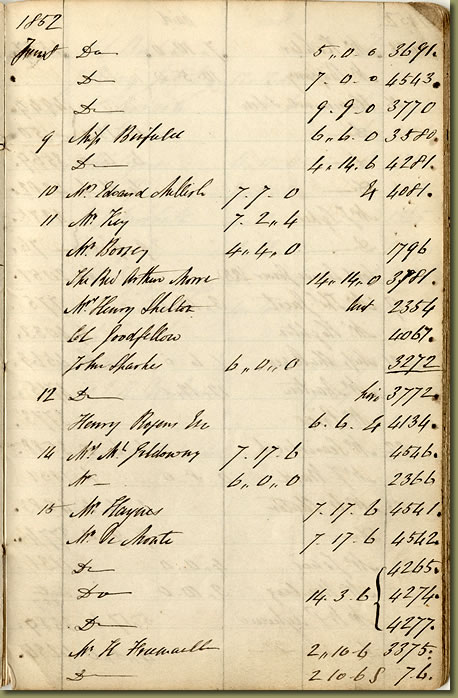 1852
June 8 Do 5,,0,,0 3691.
D 7..0..0 4543.
D 9..9..0 3770
9 Miss Binfield 6..6..0 3580.
D 4..14..6 4281.
10 Mr Edward Mellish 7..7..0 Ex 4081.
11 Mr Key 7..2..4
Mr Boosey 4..4..0 1796
The Revd Arthur 14..14..0 3781.
Mr Henry Shelton 2354
Col Goodfellow 4067.
John Sparkes 6,,0,,0 3272
12 D hire 3772.
Henry Rogers Esq 6..6.. 4134.
14 Mr 7.17.6 4546.
6,,0,,0 2366
15 Mr Haynes 7.17.6 4541.
Mr De Monte 7.17.6 4542.
D 4265.
Do 14.3.6 4274.
D 4277.
Mr H 2,,10..6 3375.
D 2 10..6 7.6.